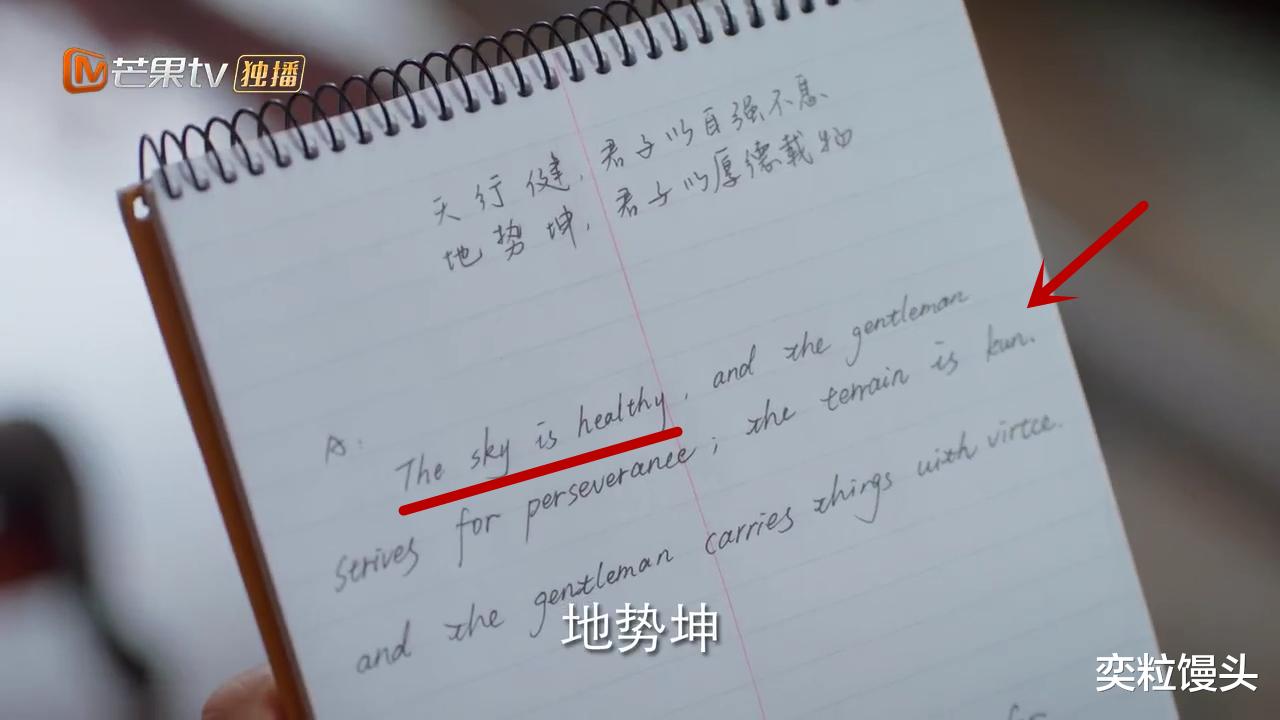 芒果tv 独播
天行健，君子以自强不息
地势坤，君子以厚德载物
A: The sky is healthy, and the gentleman
strives for perseverance; the terrain is kun.
and the gentleman carries things with virtue.
地势坤
奕粒馒头